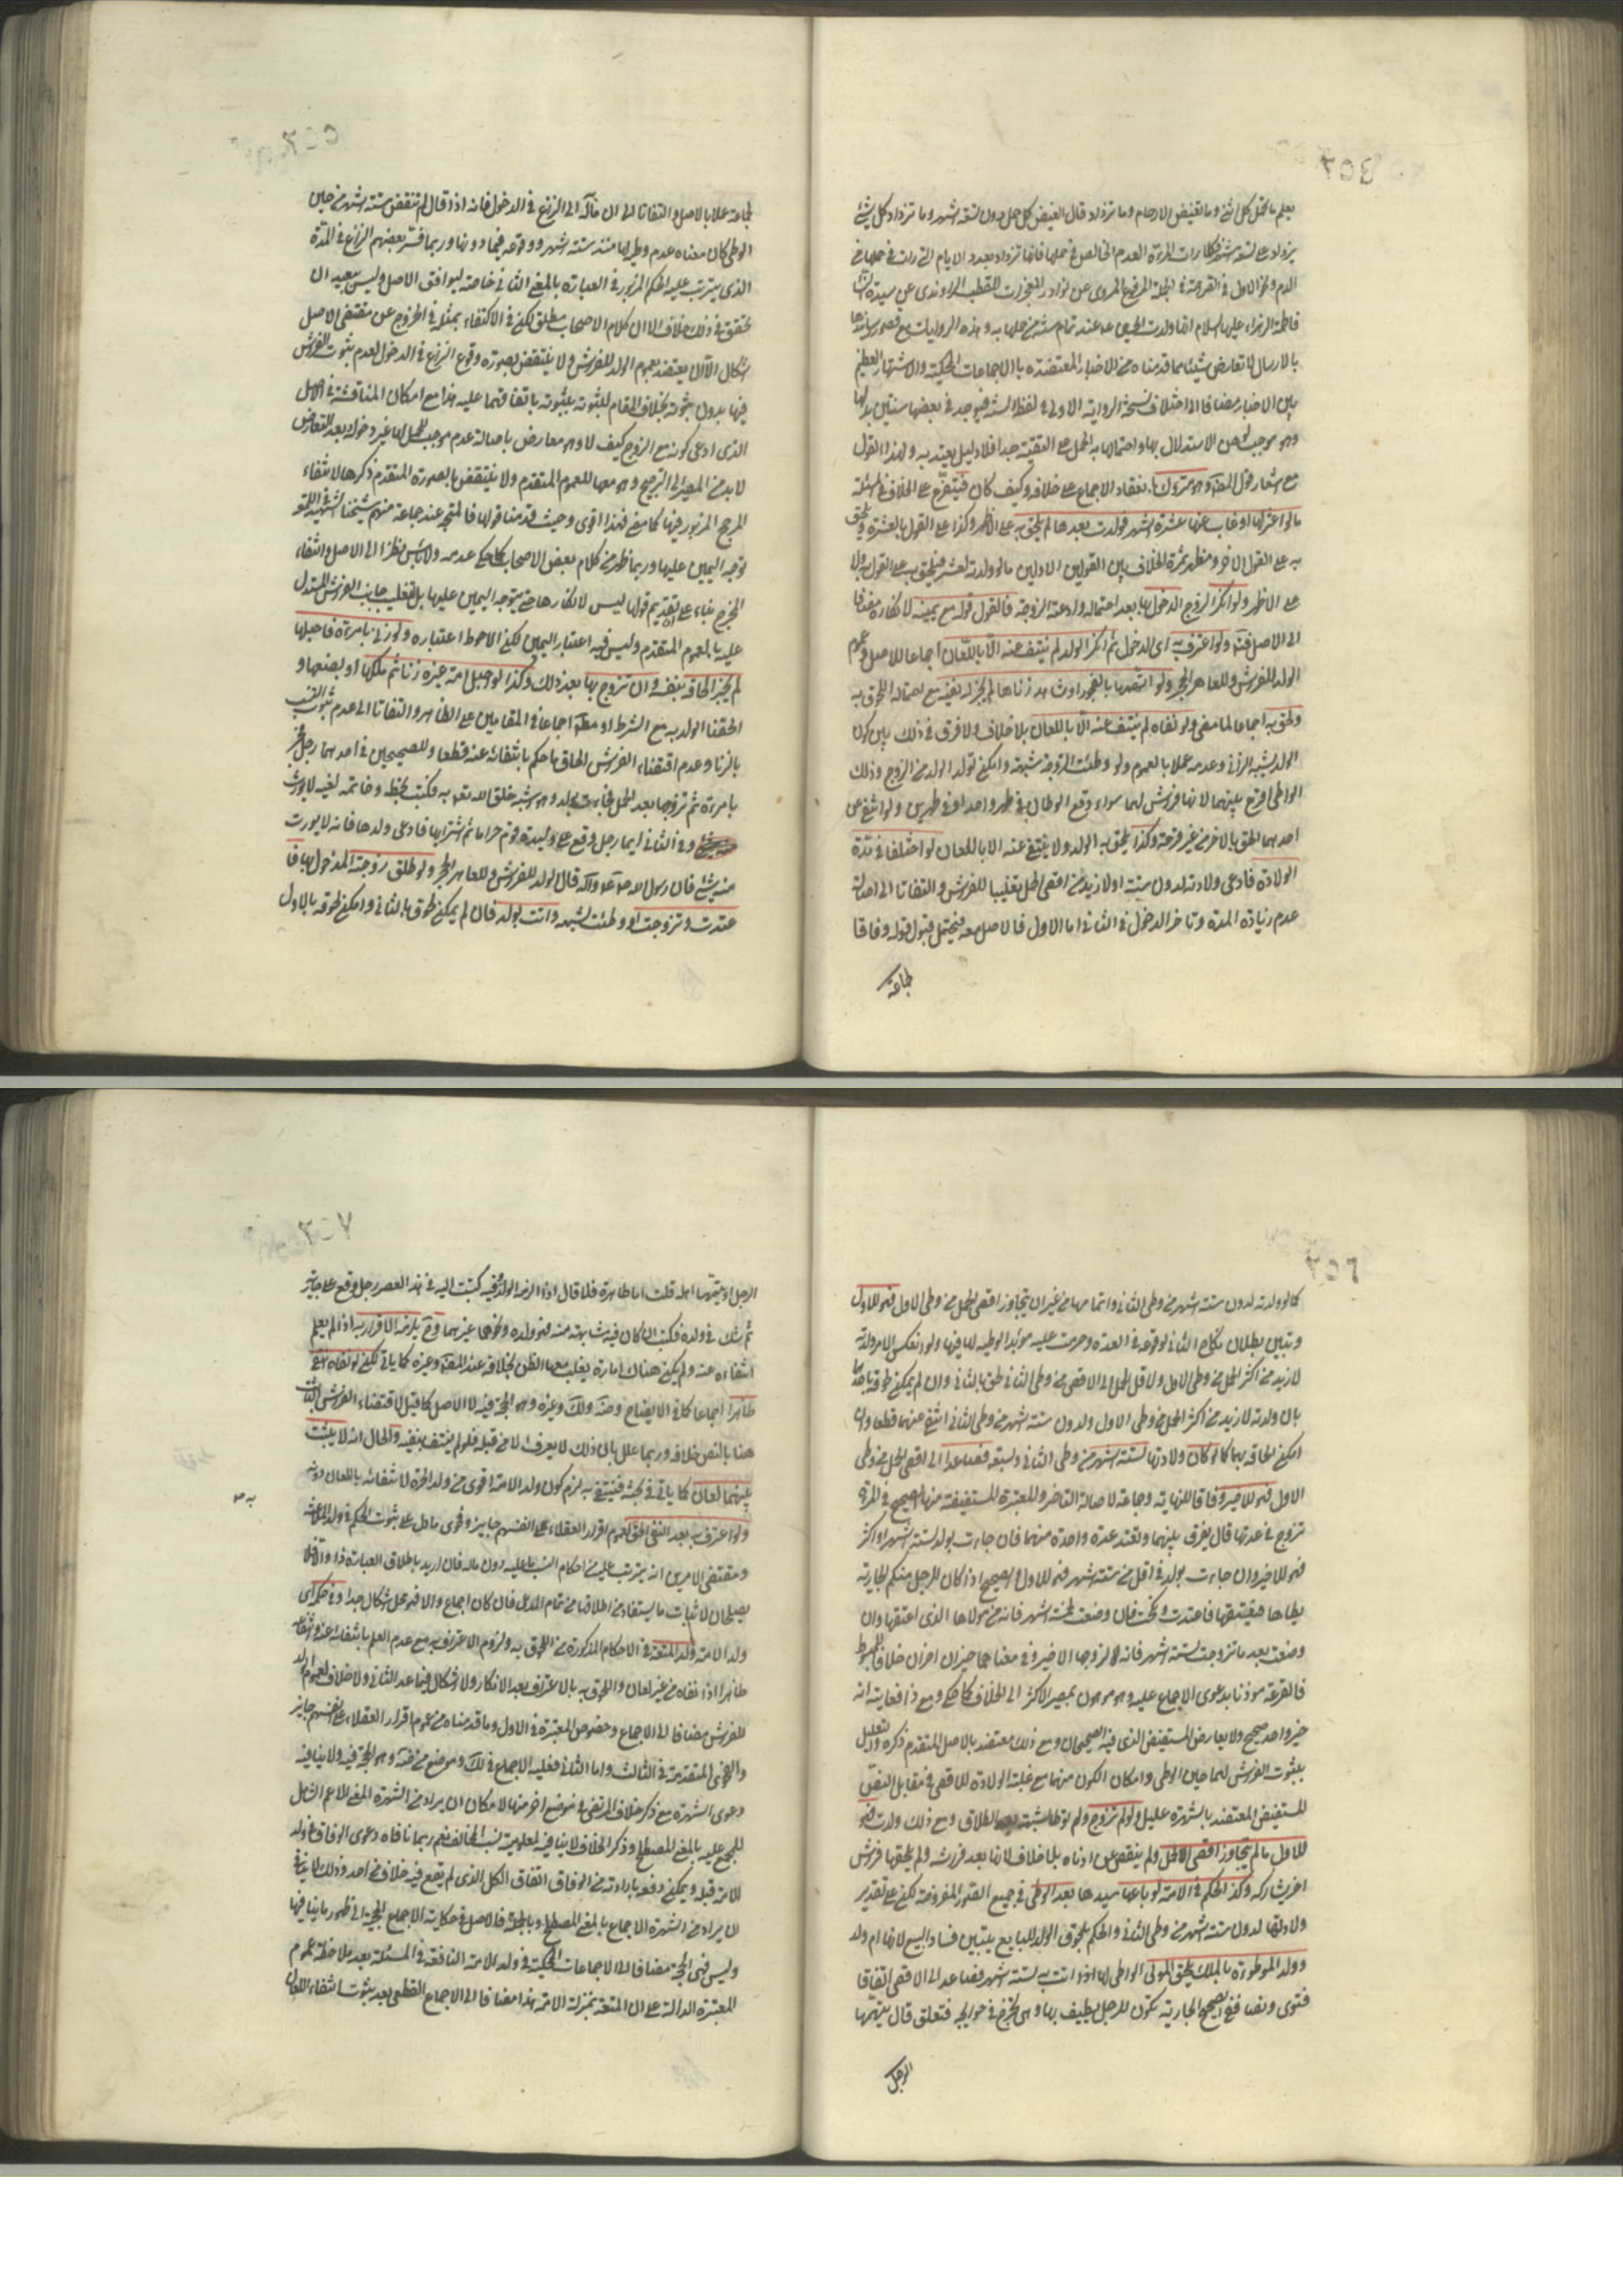 يعلم ما تحمل كل انثى وما تغيض الارحام وما تزداد قال الغيض كل حمل دون تسعة اشهر وما تزداد كل شيء
يزداد على تسعة اشهر فكلما رات المرءة الدم الخالص في حملها فانها تزداد بعدد الايام التي رات في حملها من
الدم ونحو الاول في القرب منه في الجملة المرفوع المروي عن نوادر المعجزات للقطب الراوندي عن سيدة النساء
فاطمة الزهراء عليها السلام انها ولدت الحسين عند تمام سنة من حملها به وهذه الروايات مع قصور سندها
بالارسال لا تعارض شيئا مما قدمناه من الاخبار المعتضدة بالاجماعات المحكية والاشتهار العظيم
بين الاخبار مضافا الى اختلاف نسخة الرواية الاولى في لفظ السنة فيوجد في بعضها سنتين بدلها
وهو موجب لوهن الاستدلال بها واحتمالها به الحمل على التقية جدا فلا دليل يعتد به لهذا القول
مع اشعار قول المصنف وهو متروك بانعقاد الاجماع على خلافه وكيف كان فيتفرع على الخلاف في المسئلة
ما لو اعتزلها او غاب عنها عشرة اشهر فولدت بعدها لم يلحق به على الاظهر وكذا على القول بالعشرة ويلحق
به على القول الاخر ومظهر ثمرة الخلاف بين القولين الاولين ما لو ولدته لعشر فيلحق به على القول به ولا
على الاظهر ولو انكر الزوج الدخول بها بعد احتماله وادعته الزوجة فالقول قوله مع يمينه لانكاره مضافا
الى الاصل فتدبر ولو اعترف به اي الدخول ثم انكر الولد لم ينتف عنه الا باللعان اجماعا للاصل وعموم
الولد للفراش وللعاهر الحجر ولو اتهمها بالفجور او شاهد زناها لم يجز له نفيه مع احتماله اللحوق به
ولحق به اجماعا لما مضى ولو نفاه لم ينتف عنه الا باللعان بلا خلاف ولا فرق في ذلك بين كون
الولد يشبه الزاني وعدمه عملا بالعموم ولو وطئت الزوجة شبهة وامكن تولد الولد من الزوج وذلك
الواطي اقرع بينهما لانها فراش لهما سواء وقع الوطيان في طهر واحد او في طهرين ولو انتفى عن
احدهما لحق بالاخر من غير قرعة وكذا يلحق به الولد ولا ينتفى عنه الا باللعان لو اختلفا في مدة
الولادة فادعى ولادته لدون ستة او لازيد من اقصى الحمل تغليبا للفراش والتفاتا الى اصالة
عدم زيادة المدة وتاخر الدخول في الثاني اما الاول فالاصل معه فيحتمل قبول قوله وفاقا
لجماعة
لجماعة عملا بالاصل والتفاتا الى ان ماله الى النزاع في الدخول فانه اذا قال لم تنقض ستة اشهر من حين
الوطي كان معناه عدم وطيه لها منذ ستة اشهر ووقوعه فيما دونها وربما فسر بعضهم النزاع في المدة
الذي يترتب عليه الحكم المزبور في العبارة بالمعنى الثاني خاصة ليوافق الاصل وليس ببعيد ان
تحقق في ذلك خلاف الا ان كلام الاصحاب مطلق لكن في الاكتفاء بمثله في الخروج عن مقتضى الاصل
اشكال الا ان يعتضد بعموم الولد للفراش ولا ينتقض بصورة وقوع النزاع في الدخول لعدم ثبوت الفراش
فيها بدون ثبوته بخلاف المقام للثبوته باتفاقهما عليه هذا مع امكان المناقشة في الاصل
الذي ادعى كونه مع الزوج كيف لا وهو معارض باصالة عدم موجب للحمل لها غير دخوله وبعد التعارض
لا بد من المصير الى الترجيح وهو معها للعموم المتقدم ولا ينتقض بالصورة المتقدم ذكرها لانتفاء
المرجح المزبور فيها كما مضى فهذا اقوى وحيث قدمنا قولها فالمتجه عند جماعة منهم شيخنا الشهيد في اللمعة
توجه اليمين عليها وربما ظهر من كلام بعض الاصحاب كما حكي عدمه ولا بأس نظرا الى الاصل وانتفاء
المخرج بناء على ان تقديم قولها ليس لانكارها حتى يتوجه اليمين عليها بل لتغليب جانب الفراش المستدل
عليه بالعموم المتقدم وليس فيه اعتبار اليمين لكن الاحوط اعتباره ولو زنى بامرءة فاحبلها
لم يجز الحاقه بنفسه وان تزوج بها بعد ذلك وكذا لو احبل امة غيره زنا ثم ملكها او بضعها و
الحقنا الولد به مع الشرط او مطلقا اجماعا في المقامين على الظاهر والتفاتا الى عدم ثبوت النسب
بالزنا وعدم اقتضاء الفراش الحاق ما حكم بانتفائه عنه قطعا وللصحيحين في احدهما رجل فجر
بامرءة ثم تزوجها بعد الحمل فجاءت بولد وهو اشبه خلق الله به فكتب بخطه وخاتمه لغية لا يورث
وفي الثاني ايما رجل وقع على وليدة قوم حراما ثم اشتراها فادعى ولدها فانه لا يورث
منه شيء فان رسول الله صلى الله عليه وآله قال الولد للفراش وللعاهر الحجر ولو طلق زوجته المدخول بها فا
عتدت وتزوجت او وطئت لشبهة واتت بولد فان لم يمكن لحوقه بالثاني وامكن لحوقه بالاول
كما لو ولدته لدون ستة اشهر من وطي الثاني ولتمامها من غير ان يتجاوز اقصى الحمل من وطي الاول فهو للاول
وتبين بطلان نكاح الثاني لوقوعه في العدة وحرمت عليه مؤبدا لوطيه لها فيها ولو انعكس الامر ولدته
لازيد من اكثر الحمل من وطي الاول ولاقل الحمل الى الاقصى من وطي الثاني لحق بالثاني وان لم يمكن لحوقه باحدهما
بان ولدته لازيد من اكثر الحمل من وطي الاول ولدون ستة اشهر من وطي الثاني انتفى عنهما قطعا وان
امكن الحاقه بهما كما لو كان ولادتها لستة اشهر من وطي الثاني فصاعدا الى اقصى الحمل من وطي
الاول فهو للاخير وفاقا للنهاية وجماعة لاصالة التاخر وللمعتبرة المستفيضة منها الصحيح في المرءة
تزوج في عدتها قال يفرق بينهما وتعتد عدة واحدة منهما فان جاءت بولد لستة اشهر او اكثر
فهو للاخير وان جاءت بولد في اقل من ستة اشهر فهو للاول والصحيح اذا كان للرجل منكم الجارية
يطاها فيعتقها فاعتدت ونكحت فان وضعت لخمسة اشهر فانه من مولاها الذي اعتقها وان
وضعت بعد ما تزوجت لستة اشهر فانه لزوجها الاخير وفي معناهما خبران اخران خلافا للمبسوط
فالقرعة مؤذنا بدعوى الاجماع عليه وهو موهون بمصير الاكثر الى الخلاف كما حكي ومع ذا فغايته انه
خبر واحد صحيح ولا يعارض المستفيض الذي فيه الصحيحان ومع ذلك معتضد بالاصل المتقدم ذكره والتعليل
بثبوت الفراش لهما حين الوطي وامكان الكون منهما مع غلبة الولادة للاقصى في مقابل النص
المستفيض المعتضد بالشهرة عليل ولو لم تزوج ولم توطا لشبهة بعد الطلاق ومع ذلك ولدت فهو
للاول ما لم يتجاوز اقصى الحمل ولم ينقص عن ادناه بلا خلاف لانها بعد فراشه ولم يلحقها فراش
اخر يشاركه وكذا الحكم في الامة لو باعها سيدها بعد الوطي في جميع الصور المفروضة لكن على تقدير
ولادتها لدون ستة اشهر من وطي الثاني والحكم بلحوق الولد للبايع يتبين فساد البيع لانها ام ولد
وولد الموطوءة بالملك يلحق المولى الواطي لها اذا اتت به لستة اشهر فصاعدا الى الاقصى اتفاقا
فتوى ونصا ففي الصحيح الجارية تكون للرجل يطيف بها وهي تخرج في حوايجه فتعلق قال يتهمها
الرجل
الرجل او يتهمها اهله قلت اما ظاهرة فلا قال اذا لزمه الولد وفيه كتبت اليه في هذا العصر رجل وقع على جاريته
ثم شك في ولده فكتب ان كان فيه مشابهة منه فهو ولده ونحوهما غيرهما ويلزمه الاقرار به اذا لم يعلم
انتفاءه عنه ولم يكن هناك امارة يغلب معها الظن بخلافه عند المصنف وغيره كما ياتي لكن لو نفاه انتفى
ظاهرا اجماعا كما في الايضاح وغيره وهو الحجة فيه لا الاصل كما قيل لاقتضاء الفراش الثابت
هنا بالنص خلافه وربما علل بان ذلك لا يعرف الا من قبله فلو لم ينتف بنفيه والحال انه لا يثبت
بينهما لعان كما ياتي في بحثه فينتفي به لزم كون ولد الامة اقوى من ولد الحرة لانتفائه باللعان دونه
ولو اعترف به بعد النفي الحق لعموم اقرار العقلاء على انفسهم جايز وفحوى ما دل على ثبوت الحكم في ولد الملاعنة
ومقتضى الامرين انه يترتب عليه من احكام النسب ما عليه دون ماله فان اريد باطلاق العبارة ذا والا فلا
يصلحان لاثبات ما يستفاد من اطلاقها من تمام المدعى فان كان اجماع والا فهو محل اشكال جدا وفي حكم اي
ولد الامة ولد المتعة في الاحكام المذكورة من اللحوق به ولزوم الاعتراف به مع عدم العلم بانتفائه عنه وانتفائه
ظاهرا اذا نفاه من غير لعان واللحوق به بالاعتراف بعد الانكار ولا اشكال فيما عدا الثاني ولا خلاف لعموم الولد
للفراش مضافا الى الاجماع وخصوص المعتبرة في الاول وما قدمناه من عموم اقرار العقلاء على انفسهم جايز
والفحوى المتقدمة في الثالث واما الثاني فعليه الاجماع في لك وموضع من ضه وهو الحجة فيه ولا ينافيه
دعوى الشهرة مع ذكر خلاف المرتضى في موضع اخر منها لامكان ان يراد من الشهرة المعنى الاعم الشامل
للمجمع عليه بالمعنى المصطلح وذكر الخلاف لا ينافيه لمعلومية نسب المخالف نعم ربما نافاه دعوى الوفاق على ولد
الامة قبله ويمكن دفعه بارادته من الوفاق اتفاق الكل الذي لم يقع فيه خلاف من احد وذلك لا ينافي
ان يراد من الشهرة الاجماع بالمعنى المصطلح وبالجملة فالاصل في حكاية الاجماع الحجية الى ظهور ما ينافيها
وليس فهي الحجة مضافا الى الاجماعات المحكية في ولد الامة النافعة في المسئلة بعد ملاحظة عموم
المعتبرة الدالة على ان المتعة بمنزلة الامة هذا مضافا الى الاجماع القطعي بعد ثبوت انتفاء اللعان